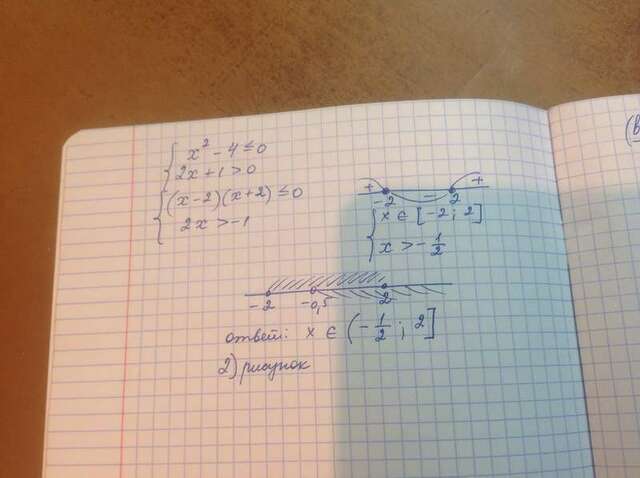 x² - 4 ≤ 0
2x + 1 > 0
(x-2)(x+2) ≤ 0
2x > -1
+ - +
-2 2
x ∈ [-2; 2]
x > -1/2
-2 -0,5 2
ответ: x ∈ (-1/2; 2]
2) рисунок
(в